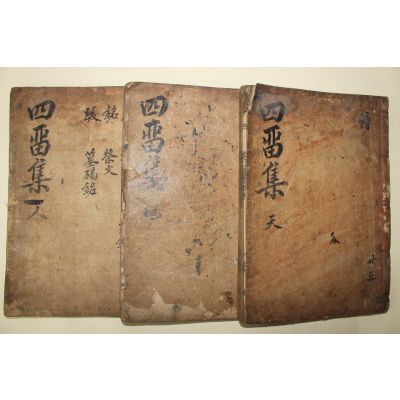 四留集 天
詩
四留集 地
四留集 人
銘 祭文
跋 墓碣銘